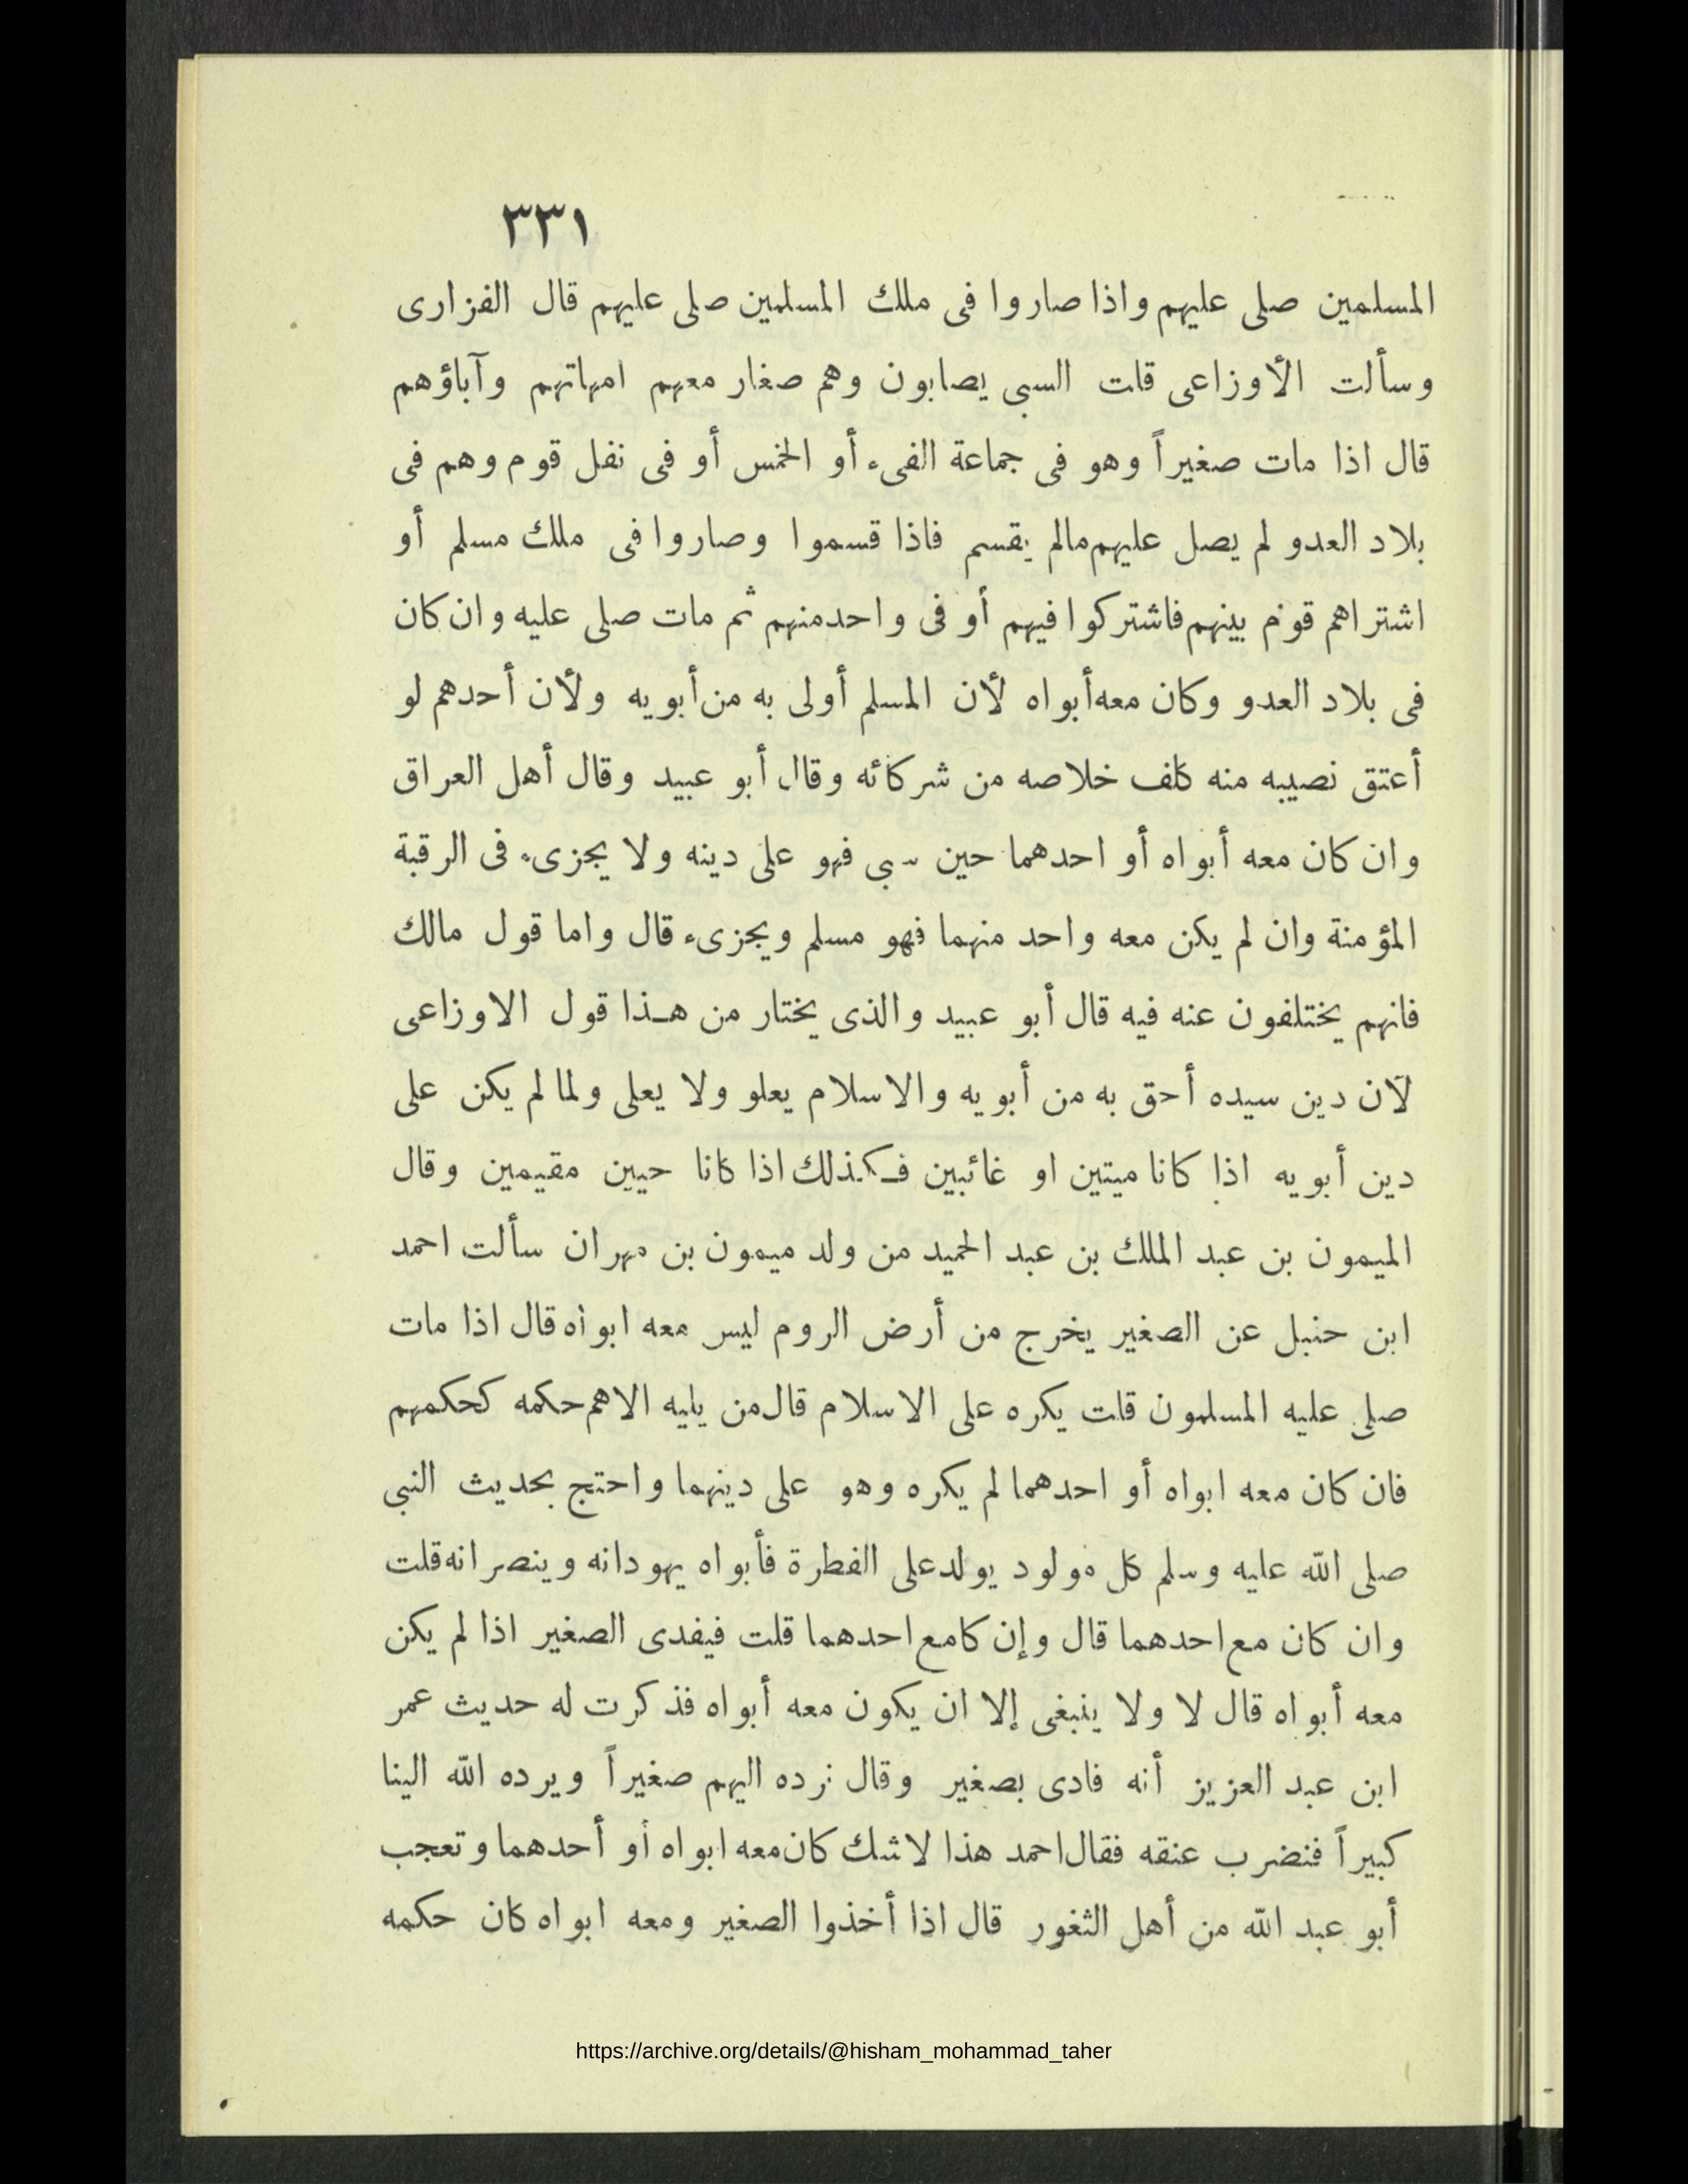 ٣٣١
المسلمين صلى عليهم واذا صاروا فى ملك المسلمين صلى عليهم قال الفزارى
وسألت الأوزاعى قلت السبى يصابون وهم صغار معهم امهاتهم وآباؤهم
قال اذا مات صغيراً وهو فى جماعة الفىء أو الخمس أو فى نفل قوم وهم فى
بلاد العدو لم يصل عليهم مالم يقسم فاذا قسموا وصاروا فى ملك مسلم أو
اشتراهم قوم بينهم فاشتركوا فيهم أو فى واحد منهم ثم مات صلى عليه وان كان
فى بلاد العدو وكان معه أبواه لأن المسلم أولى به من أبويه ولأن أحدهم لو
أعتق نصيبه منه كلف خلاصه من شركائه وقال أبو عبيد وقال أهل العراق
وان كان معه أبواه أو احدهما حين سبى فهو على دينه ولا يجزىء فى الرقبة
المؤمنة وان لم يكن معه واحد منهما فهو مسلم ويجزىء قال واما قول مالك
فانهم يختلفون عنه فيه قال أبو عبيد والذى يختار من هـذا قول الاوزاعى
لآن دين سيده أحق به من أبويه والاسلام يعلو ولا يعلى ولما لم يكن على
دين أبويه اذا كانا ميتين او غائبين فـكذلك اذا كانا حيين مقيمين وقال
الميمون بن عبد الملك بن عبد الحميد من ولد ميمون بن مهران سألت احمد
ابن حنبل عن الصغير يخرج من أرض الروم ليس معه ابواه قال اذا مات
صلى عليه المسلمون قلت يكره على الاسلام قال من يليه الاهم حكمه كحكمهم
فان كان معه ابواه أو احدهما لم يكره وهو على دينهما واحتج بحديث النبى
صلى الله عليه وسلم كل مولود يولد على الفطرة فأبواه يهودانه وينصرانه قلت
وان كان مع احدهما قال وإن كامع احدهما قلت فيفدى الصغير اذا لم يكن
معه أبواه قال لا ولا ينبغى إلا ان يكون معه أبواه فذكرت له حديث عمر
ابن عبد العزيز أنه فادى بصغير وقال نرده اليهم صغيراً ويرده الله الينا
كبيراً فنضرب عنقه فقال احمد هذا لاشك كان معه ابواه أو أحدهما وتعجب
أبو عبد الله من أهل الثغور قال اذا أخذوا الصغير ومعه ابواه كان حكمه
https://archive.org/details/@hisham_mohammad_taher